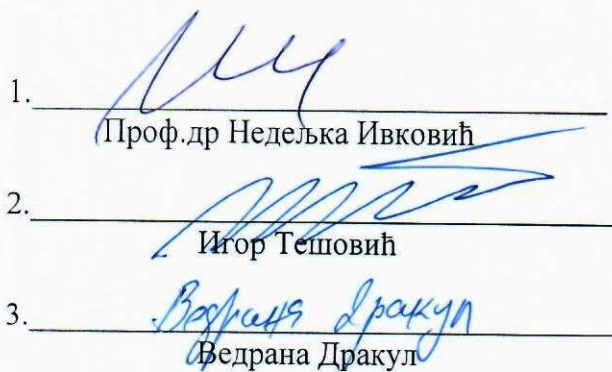 1.
Проф.др Недељка Ивковић
2.
Игор Тешовић
3. Ведрана Дракул
Ведрана Дракул